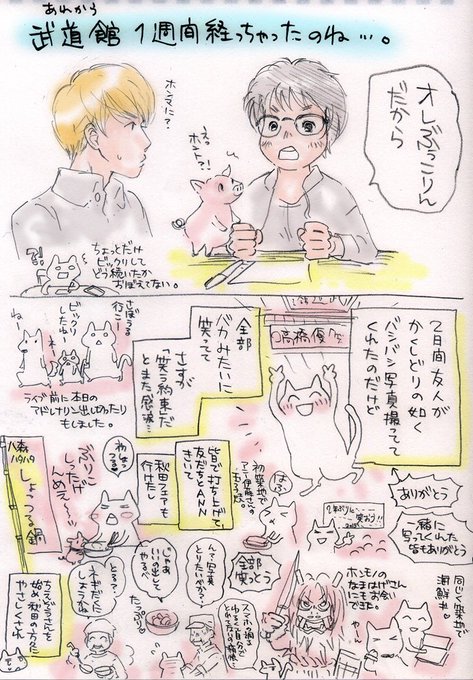 あれから
武道館 1週間経っちゃったのね…。
オレぶっこりん
だから
ホンマに?
えっ
ホント?!
ちょっとだけ
ビックリして
どう続いたか
おぼえてない。
2日間友人が
かくしどりの如く
バシバシ写真撮ってて
くれたのだけど
高橋優
全部
バカみたいに
笑ってて
さすが
「笑う約束」だ
とまた感涙…
さぼうる
行こー
ビックリ
したなー
ねー
ライブ前に本日の
アドレナリン出しきったり
もしました。
ありがとう
一緒に
写ってくれた
皆もありがとう
皆で打ち上げして、
友だちとANN
きいて
秋田フェアも
行けたし
初は
つる
ぶりに
しったげ
んめぇ〜
八森
ハタハタ
しょっつる鍋
全部
笑っとう
同じく築地で
海鮮丼
ホンモノの
なまはげさん
にもお会い
できた。
やーん
んで写真
とりたいべか?
じゃあ
いい出して
やるべ
とる?
ネギだくに
しような
たっぷり
ちえ子さんを
始め、秋田の方々た
やさしくされ